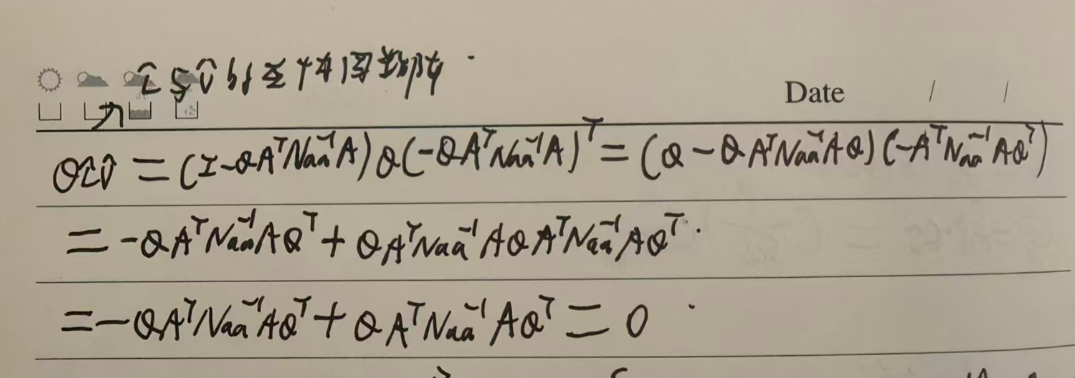 L̂与V̂的
Date / /
QL̂V̂ = (I-QAᵀNaa⁻¹A)Q(-QAᵀNaa⁻¹A)ᵀ = (Q-QAᵀNaa⁻¹AQ)(-AᵀNaa⁻¹AQᵀ)
= -QAᵀNaa⁻¹AQᵀ + QAᵀNaa⁻¹AQAᵀNaa⁻¹AQᵀ.
= -QAᵀNaa⁻¹AQᵀ + QAᵀNaa⁻¹AQᵀ = 0 .